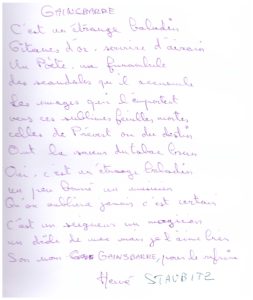 GAINSBARRE
C'est un étrange baladin
Gitanes d'or, sourire d'airain
Un Poète, un funambule
des scandales qu'il accumule
Les images qui l'emportent
vers ces sublimes feuilles mortes,
celles de Prévert ou du destin
Ont la saveur du tabac brun
Oui, c'est un étrange baladin
un peu damné un musicien
Qu'on oubliera jamais c'est certain
C'est un seigneur un magicien
un drôle de mec mais je l'aime bien
Son nom GAINSBARRE, pour le refrain
Hervé STAUBITZ